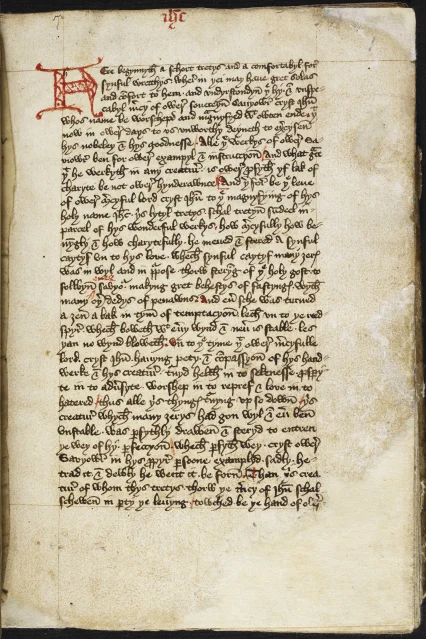 ihc
Here begynnyth a schort tretys and a comfortabyl for
synful wrecchys wher in þei may haue gret solas
and cõfort to hem and vndyrstondyn þe hy & vnspe-
cabyl m̃cy of ower souereyn Sauyowr cryst Ihũ
whos name be worschepd and magnyfyed wt owten ende þt
now in ower days to vs vnworthy deyneth to exercysen
hys nobeley & hys goodnesse. Alle þe werkys of ower Sa-
viowr ben for ower exampyl & instruccyon and what grace
þt he werkyth in any creatur. is ower profyth yf lak of
charyte be not ower hynderawnce. And þerfor be þe leue
of ower mercyful lord cryst ihũ to þe magnyfying of hys
holy name ihũ. þis lytyl tretys schal tretyn sumdeel in
parcel of hys wonderful werkys. how mercyfully how be-
nyngly & how charytefully. he meued & stered a synful
caytyf vn to hys loue. whech synful caytyf many ȝerys
was in wyl and in purpose thorw steryng of þe holy gost to
folwyn oure sauyor. makyng gret behestys of fastyngys wyth
many other dedys of penawns. And euyr sche was turned
a ȝen a bak in tym of temptacyon. lech vn to þe reed
spyr. whech boweth wt euery wynd & neuyr is stable les
þan no wynd bloweth. vn to þe tyme þt ower mercyfulle
lord. cryst ihũ. hauyng pety & cõpassyon of hys hand-
werke & hys creatur. turnyd helth in to sekenesse. prosperyte
in to aduersyte. worshep in to repref & love in to
hatered. thus alle þis thyngys turnyng vp so down. þis
creatur whych many ȝerys had gon wyl & euyr ben
vnstable. was parfythly drawen & steryd to entren
þe wey of hy perfeccyon. whech parfyth wey. cryst ower
Sauyowr in hys propyr persoone examplyd. sadly he
trad it & dewly he went it be forn. Than þis crea-
tur of whom thys tretys thorw þe mercy of ihũ schal
schewen in party þe leuyng. towched be þe hand of ower